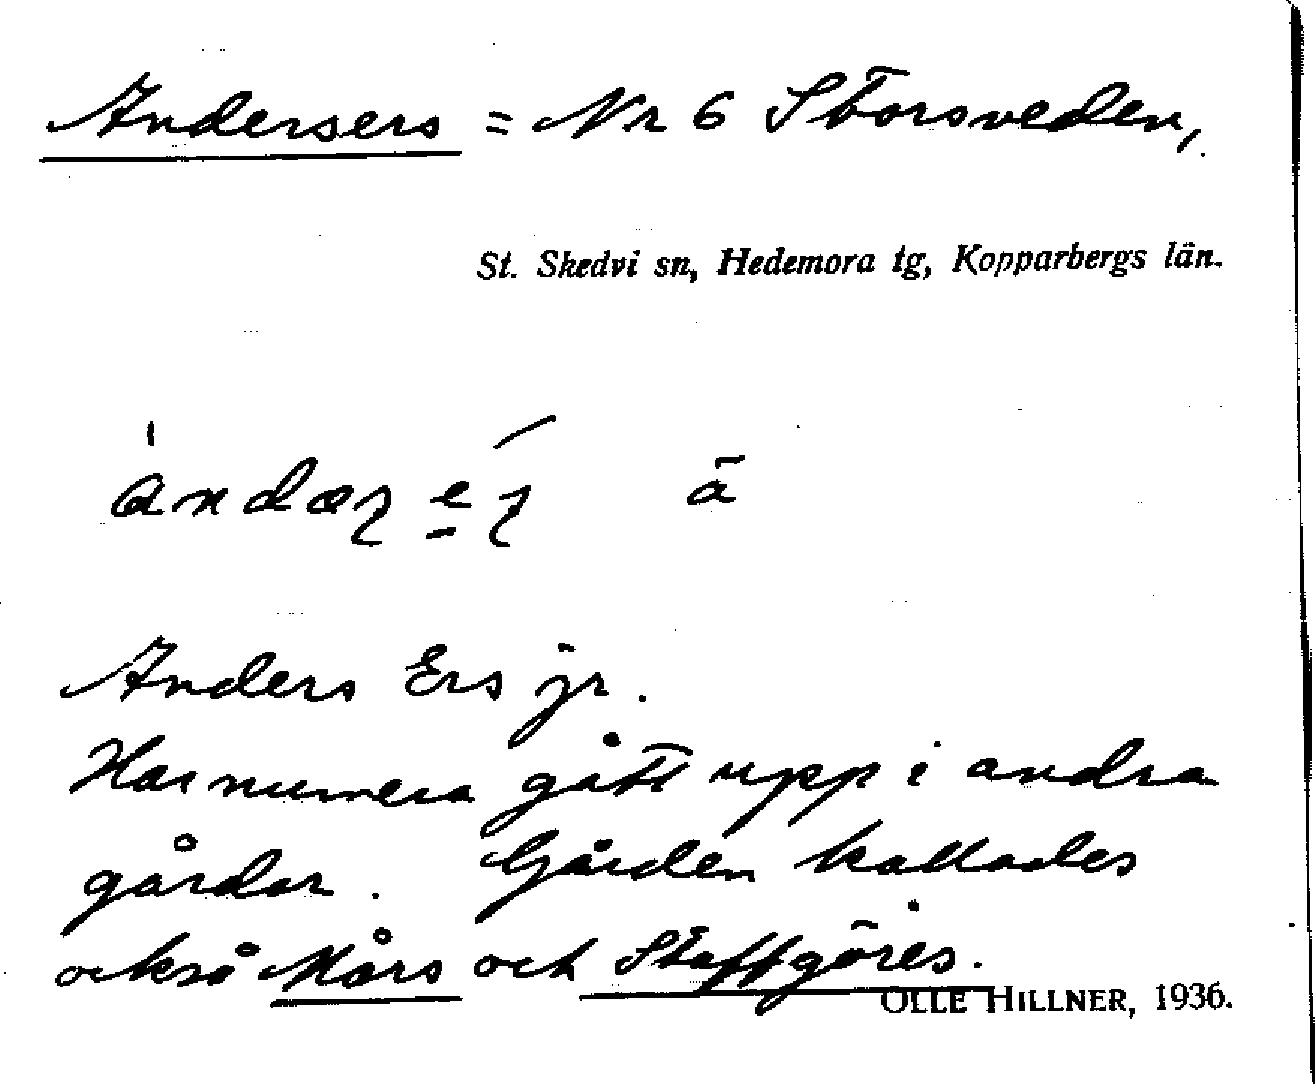 Andersers = Nr 6 Storsveden,
St. Skedvi sn, Hedemora tg, Kopparbergs län.
ā
Anders Ers jr.
Har numera gått upp i andra
gårdar. Gården kallades
också Mårs och Staffgöres.
OLLE HILLNER, 1936.